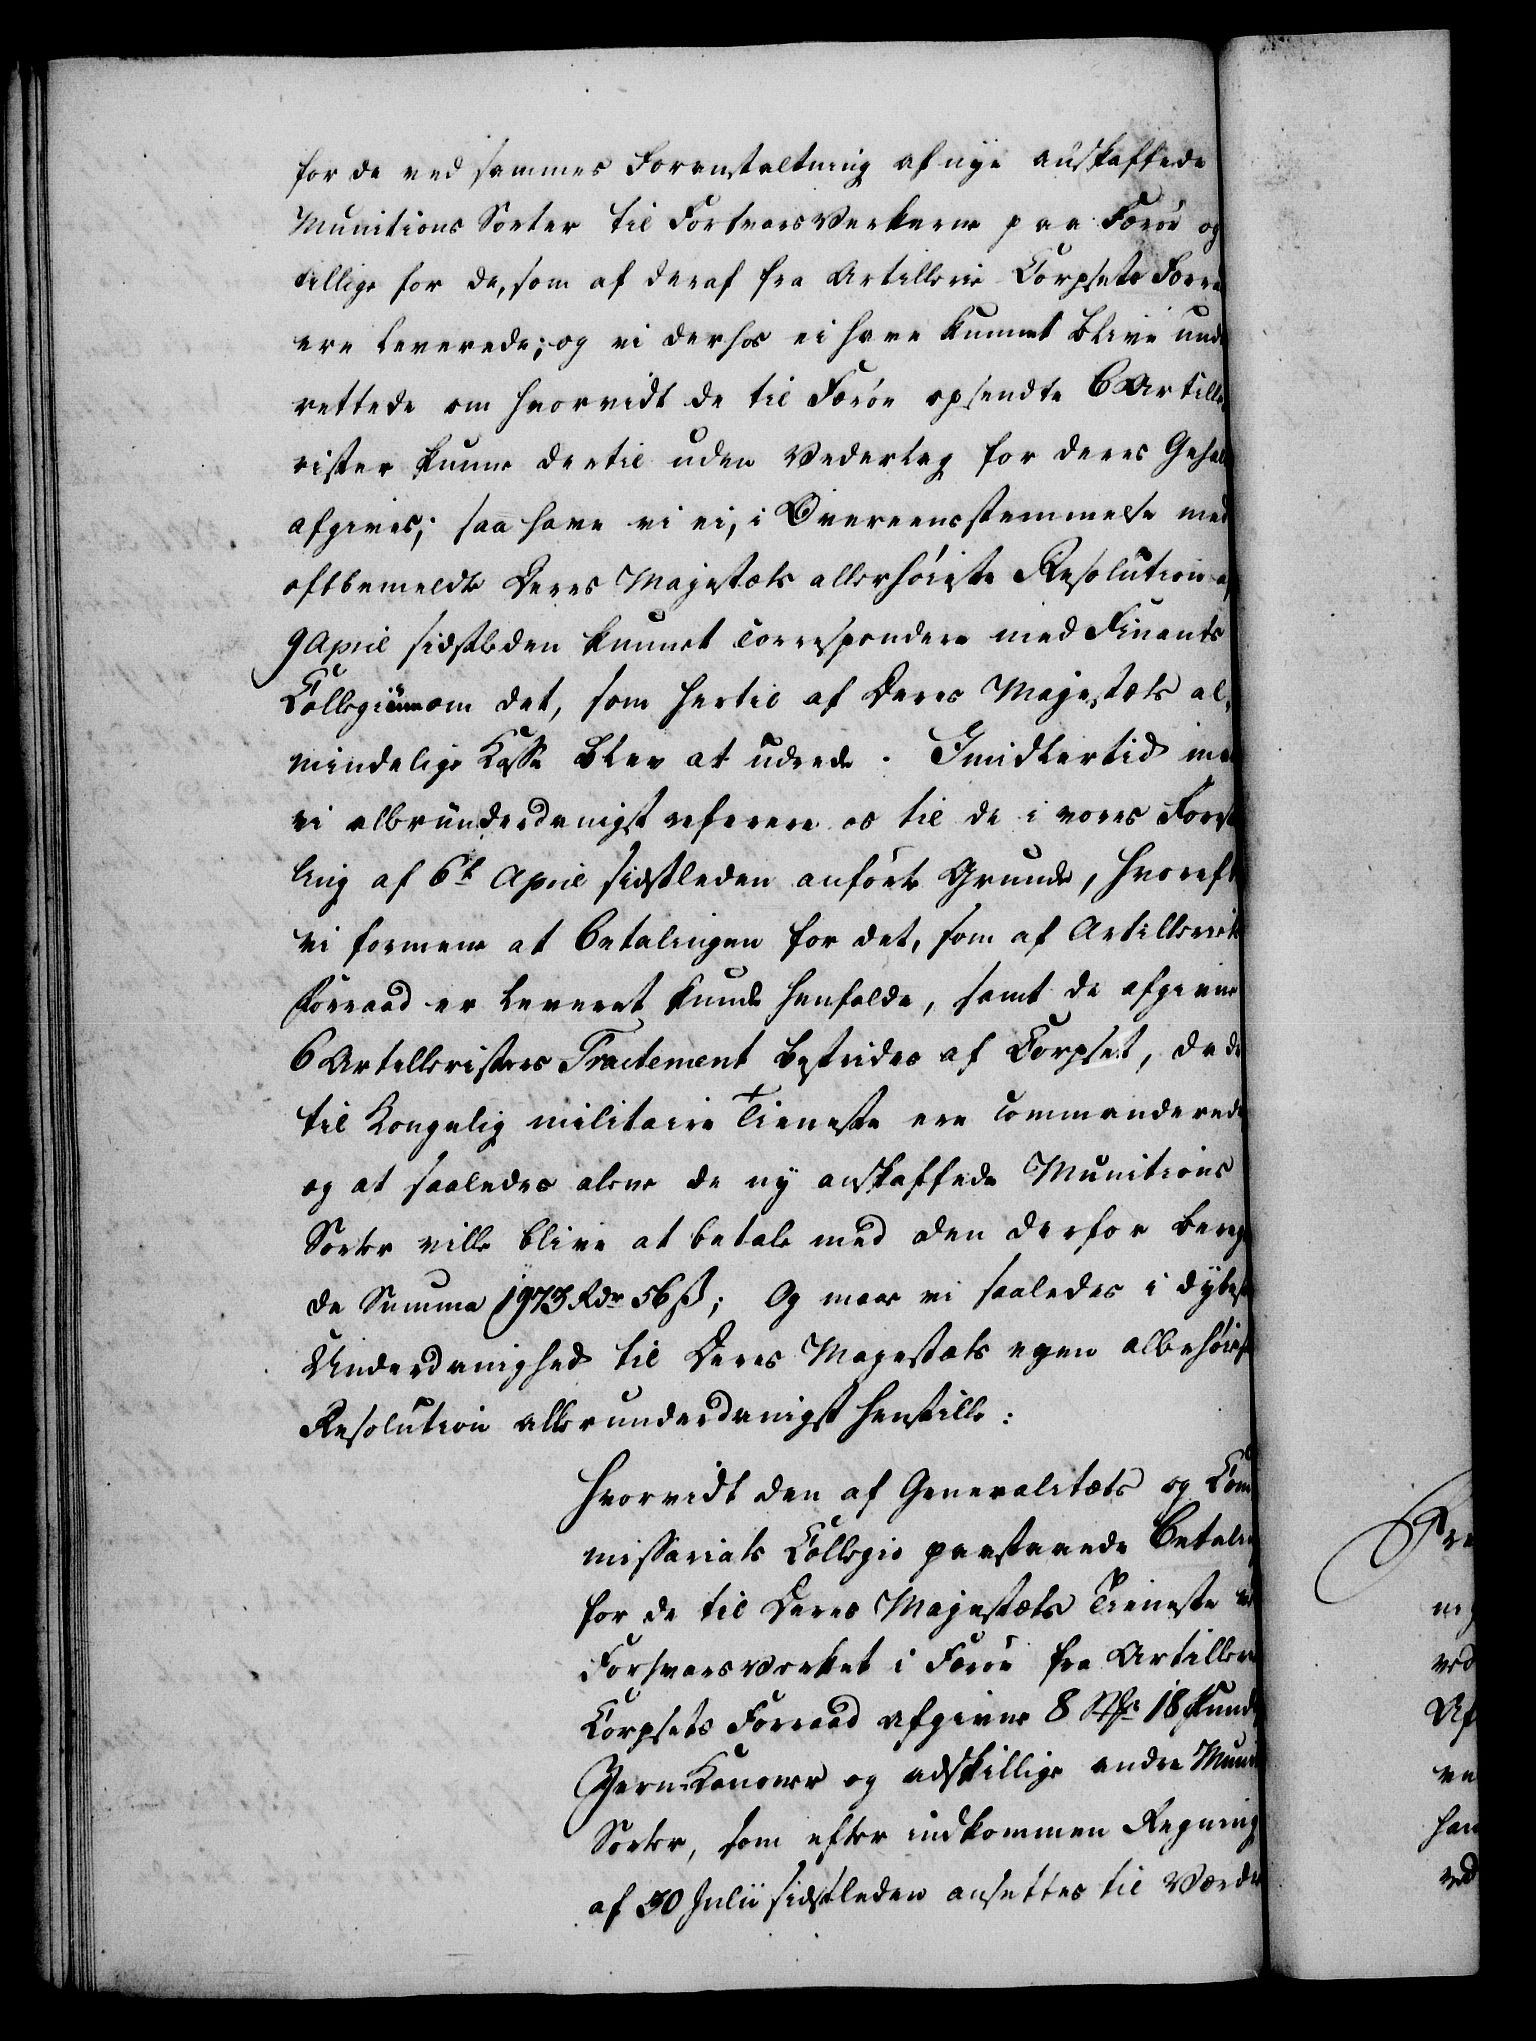 for de ved sammes Foranstaltning af nye anskaffede
Munitions Sorter til Forsvars Verkerne paa Færöe og
tillige for de, som af deraf fra Artillerie Corpsets Forra
ere leverede; og vi derhos ei have kunnet blive und
rettede om hvorvidt de til Færöe opsendte 6 Artille
rister kunne dertil uden Vederlag for deres Gehal
afgives; saa have vi ei, i Overeensstemmelse med
oftbemeldte Deres Majestæts allerhöieste Resolution af
9 April sidstleden kunnet correspondere med Finants
Collegium om det, som hertil af Deres Majestæts al,
mindelige Casse blev at udrede. Imidlertid maa
vi allerunderdanigst referere os til de i vores Forst
ling af 6t April sidstleden anförte Grunde, hvoreft
vi formene at Betalingen for det, som af Artilleriets
Forraad er leveret kunde henfalde, samt de afgivne
6 Artilleristers Tractement bestrides af Corpset, da de
til Kongelig militaire Tieneste ere commanderede
og at saaledes alene de ny anskaffede Munitions
Sorter ville blive at betale med den derfor bereg
de Summa 1973 Rdr 56 ß; Og maae vi saaledes i dybeste
Underdanighed til Deres Majestæts egen allerhöieste
Resolution allerunderdanigst henstille:
Hvorvidt den af Generalitets og Com
missariats Collegio paastaaede Betaling
for de til Deres Majestæts Tieneste ved
Forsvarsverket i Færöe fra Artillerie
Corpsets Forraad afgivne 8 18 Punds
Jern-Kanoner og adskillige andre Muni
Sorter, som efter indkommen Regning
af 30 Julii sidstleden ansettes til Værdie